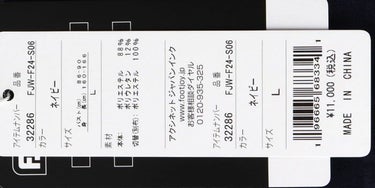 アイテムナンバー 品番
32286 FJW-F24-S06
カラー
ネイビー
サイズ
バスト(cm) 86-90
身長(cm) 160-166
L
素材
本体: ポリエステル 88%
ポリウレタン 12%
切替(別布): ポリエステル 100%
アクシネットジャパンインク
www.footjoy.jp
お客様相談ダイヤル
0120-935-325
アイテムナンバー 品番
32286 FJW-F24-S06
カラー
ネイビー
サイズ
L
1 96665 68334
¥11,000(税込)
MADE IN CHINA